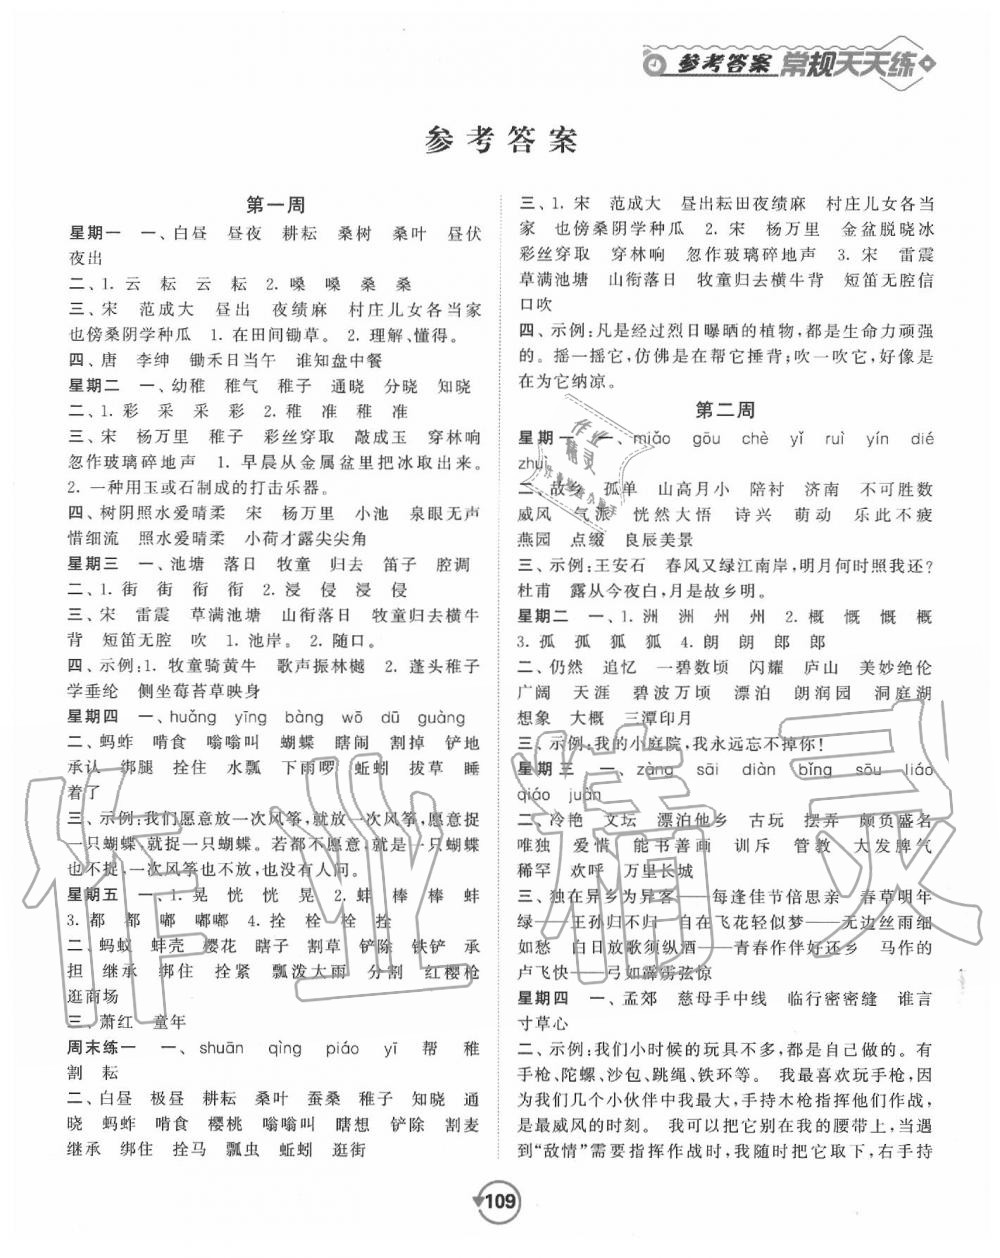 参考答案 常规天天练
参考答案
第一周
星期一 一、白昼 昼夜 耕耘 桑树 桑叶 昼伏
夜出
二、1. 云 耘 云 耘 2. 嗓 嗓 桑 桑
三、宋 范成大 昼出 夜绩麻 村庄儿女各当家
也傍桑阴学种瓜 1. 在田间锄草。 2. 理解、懂得。
四、唐 李绅 锄禾日当午 谁知盘中餐
星期二 一、幼稚 稚气 稚子 通晓 分晓 知晓
二、1. 彩 采 采 彩 2. 稚 准 稚 准
三、宋 杨万里 稚子 彩丝穿取 敲成玉 穿林响
忽作玻璃碎地声 1. 早晨从金属盆里把冰取出来。
2. 一种用玉或石制成的打击乐器。
四、树阴照水爱晴柔 宋 杨万里 小池 泉眼无声
惜细流 照水爱晴柔 小荷才露尖尖角
星期三 一、池塘 落日 牧童 归去 笛子 腔调
二、1. 街 街 衔 衔 2. 浸 侵 浸 侵
三、宋 雷震 草满池塘 山衔落日 牧童归去横牛
背 短笛无腔 吹 1. 池岸。 2. 随口。
四、示例:1. 牧童骑黄牛 歌声振林樾 2. 蓬头稚子
学垂纶 侧坐莓苔草映身
星期四 一、huǎng yīng bàng wō dū guàng
二、蚂蚱 啃食 嗡嗡叫 蝴蝶 瞎闹 割掉 铲地
承认 绑腿 拴住 水瓢 下雨啰 蚯蚓 拔草 睡
着了
三、示例:我们愿意放一次风筝,就放一次风筝,愿意捉
一只蝴蝶,就捉一只蝴蝶。若都不愿意,就是一只蝴蝶
也不捉,一次风筝也不放,也没有人问。
星期五 一、1. 晃 恍 恍 晃 2. 蚌 棒 棒 蚌
3. 都 都 嘟 嘟嘟 4. 拴 栓 栓 拴
二、蚂蚁 蚌壳 樱花 瞎子 割草 铲除 铁铲 承
担 继承 绑住 拴紧 瓢泼大雨 分割 红樱枪
逛商场
三、萧红 童年
周末练一 一、shuān qìng piáo yī 帮 稚
割 耘
二、白昼 极昼 耕耘 桑叶 蚕桑 稚子 知晓 通
晓 蚂蚱 啃食 樱桃 嗡嗡叫 瞎想 铲除 割麦
继承 绑住 拴马 瓢虫 蚯蚓 逛街
三、1. 宋 范成大 昼出耘田夜绩麻 村庄儿女各当
家 也傍桑阴学种瓜 2. 宋 杨万里 金盆脱晓冰
彩丝穿取 穿林响 忽作玻璃碎地声 3. 宋 雷震
草满池塘 山衔落日 牧童归去横牛背 短笛无腔信
口吹
四、示例:凡是经过烈日曝晒的植物,都是生命力顽强
的。摇一摇它,仿佛是在帮它捶背;吹一吹它,好像是
在为它纳凉。
第二周
星期一 一、miǎo gōu chè yǐ ruì yín dié
zhuì
二、故乡 孤单 山高月小 陪衬 济南 不可胜数
威风 气派 恍然大悟 诗兴 萌动 乐此不疲
燕园 点缀 良辰美景
三、示例:王安石 春风又绿江南岸,明月何时照我还?
杜甫 露从今夜白,月是故乡明。
星期二 一、1. 洲 洲 州 州 2. 概 慨 慨 概
3. 孤 孤 狐 狐 4. 朗 朗 郎 郎
二、仍然 追忆 一碧数顷 闪耀 庐山 美妙绝伦
广阔 天涯 碧波万顷 漂泊 朗润园 洞庭湖
想象 大概 三潭印月
三、示例:我的小庭院,我永远忘不掉你!
星期三 一、zàng sāi diàn bǐng sōu liáo
qiáo juàn
二、冷艳 文坛 漂泊他乡 古玩 摆弄 颇负盛名
唯独 爱惜 能书善画 训斥 管教 大发脾气
稀罕 欢呼 万里长城
三、独在异乡为异客——每逢佳节倍思亲 春草明年
绿——王孙归不归 自在飞花轻似梦——无边丝雨细
如愁 白日放歌须纵酒——青春作伴好还乡 马作的
卢飞快——弓如霹雳弦惊
星期四 一、孟郊 慈母手中线 临行密密缝 谁言
寸草心
二、示例:我们小时候的玩具不多,都是自己做的。有
手枪、陀螺、沙包、跳绳、铁环等。 我最喜欢玩手枪,因
为我们几个小伙伴中我最大,手持木枪指挥他们作战,
是最威风的时刻。 我可以把它别在我的腰带上,当遇
到“敌情”需要指挥作战时,我随时把它取下,右手持
109
作业精灵
作业
精灵